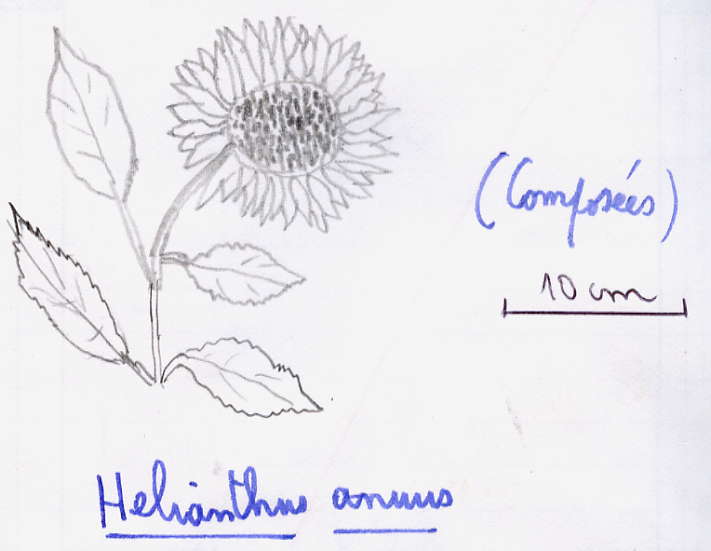 (Composées)
10 cm
Helianthus annuus